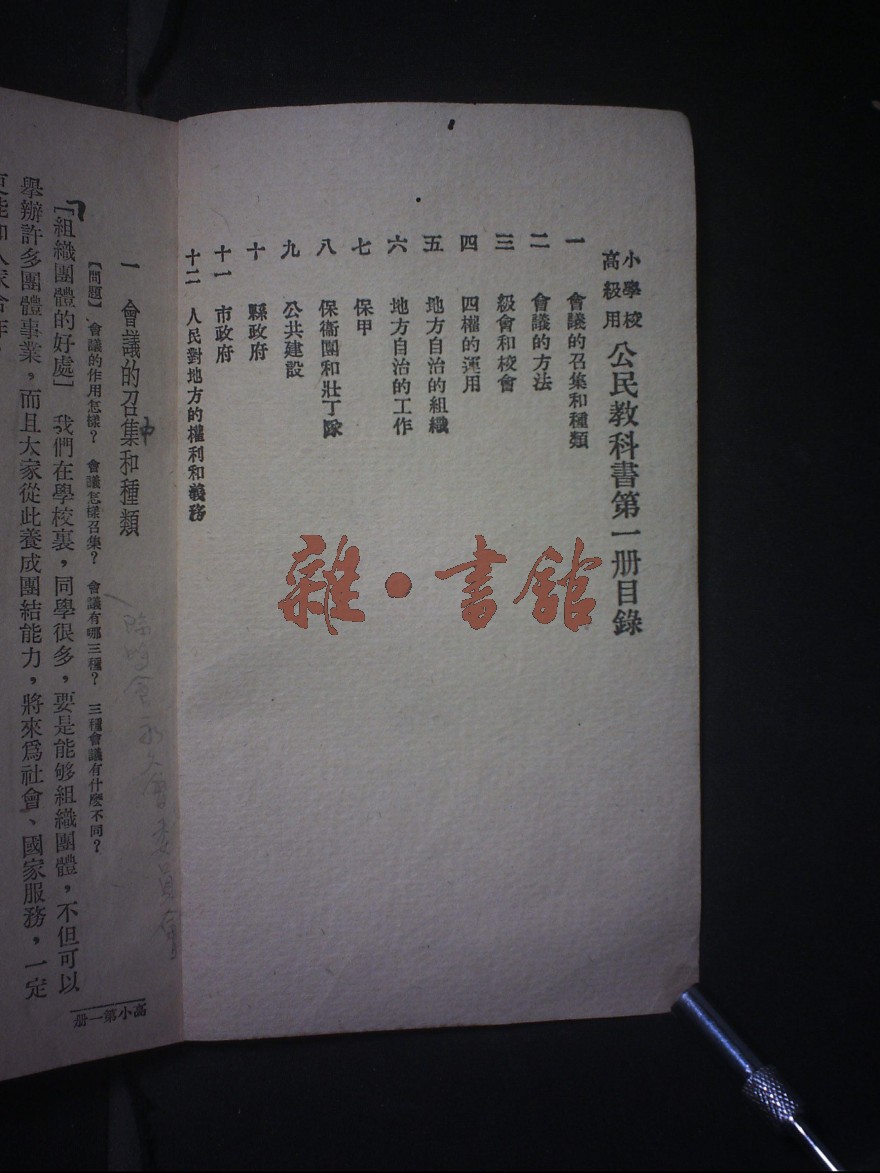 小學校高級用 公民教科書第一册目錄
一 會議的召集和種類
二 會議的方法
三 級會和校會
四 四權的運用
五 地方自治的組織
六 地方自治的工作
七 保甲
八 保衞團和壯丁隊
九 公共建設
十 縣政府
十一 市政府
十二 人民對地方的權利和義務
雜·書館
一 會議的召集和種類
【問題】會議的作用怎樣？ 會議怎樣召集？ 會議有哪三種？ 三種會議有什麼不同？
【組織團體的好處】 我們在學校裏，同學很多，要是能够組織團體，不但可以
舉辦許多團體事業，而且大家從此養成團結能力，將來爲社會、國家服務，一定
高小第一册